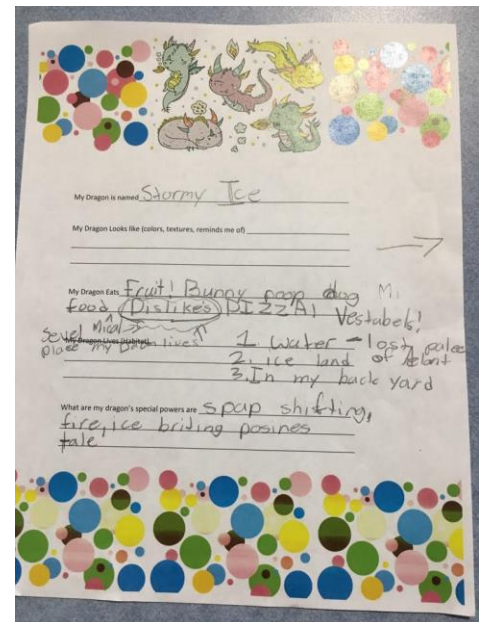 My Dragon is named Stormy Ice
My Dragon Looks like (colors, textures, reminds me of)
My Dragon Eats Fruit! Bunny poop dog Mi
food Dislikes PIZZA! Vestabels!
Sevel Mical
place my lives 1 water - lost palec
My Dragon Lives (Habitat)
2. ice land of
3. In my back yard
What are my dragon's special powers are spap shifting,
fire, ice briting posines
tale